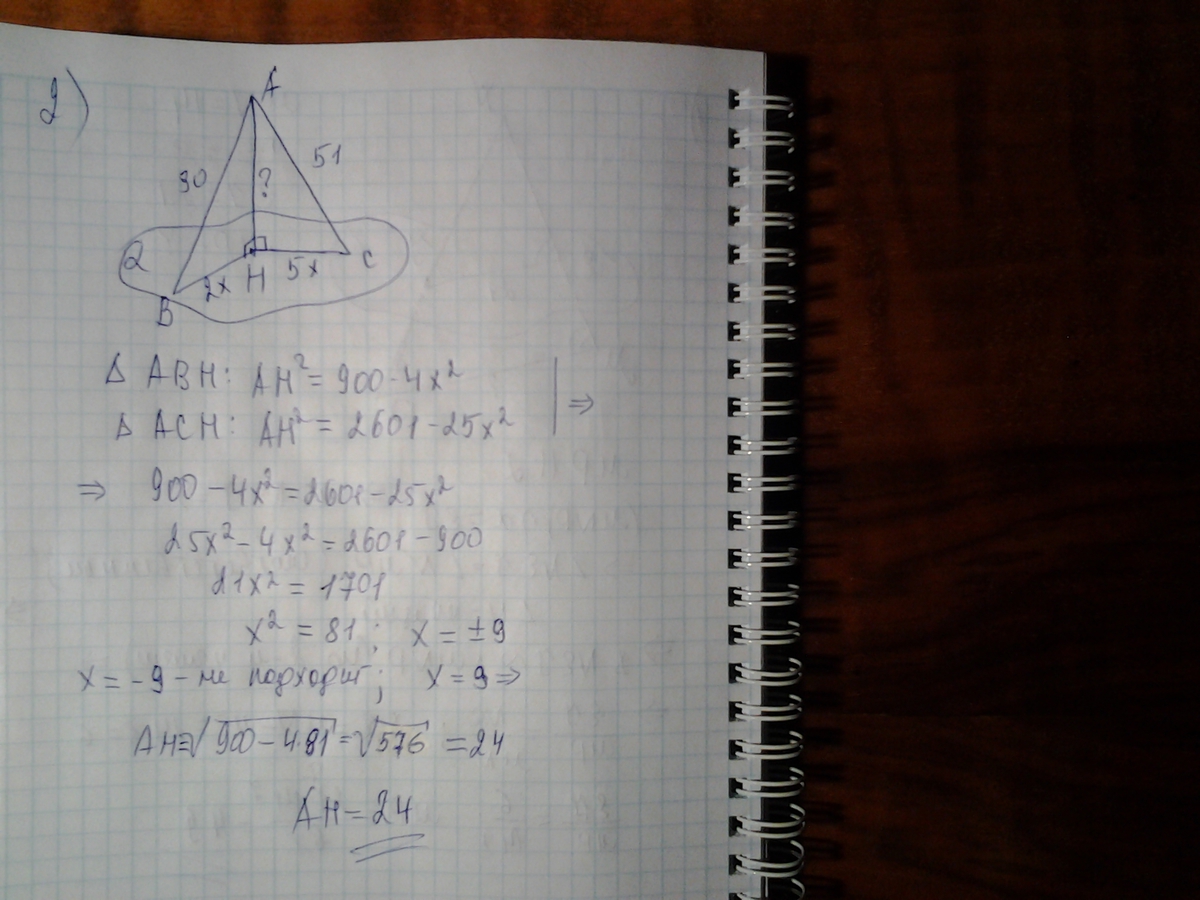 2)
A
30
51
?
Q
2x
H
5x
C
B
Δ ABH: AH² = 900 - 4x²
Δ ACH: AH² = 2601 - 25x² | ⇒
⇒ 900 - 4x² = 2601 - 25x²
25x² - 4x² = 2601 - 900
21x² = 1701
x² = 81; x = ±9
x = -9 - не подходит; x = 9 ⇒
AH = √900 - 4·81 = √576 = 24
AH = 24